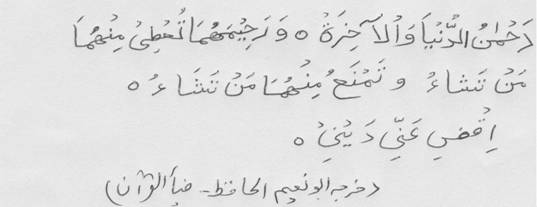 رَحْمٰنُ الدُّنْيَا وَالْاٰخِرَةِ ○ وَ رَحِيْمَهُمَا تُعْطِیْ مِنْهُمَا
مَنْ تَشَاءُ وَ تَمْنَعُ مِنْهُمَا مَنْ تَشَاءُ ○
اِقْضِ عَنِّیْ دَيْنِیْ ○
(خرجه ابو نعيم الحافظ - ضیأ القرآن)